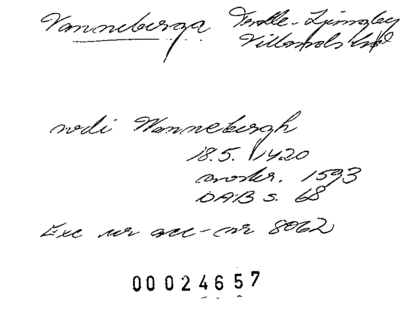 Vanneberga Trolle-Ljungby
Villands hd
Wannebergh
18.5. 1420
avskr. 1593
DAB s. 68
Exc ur acc-nr 8062
00024657